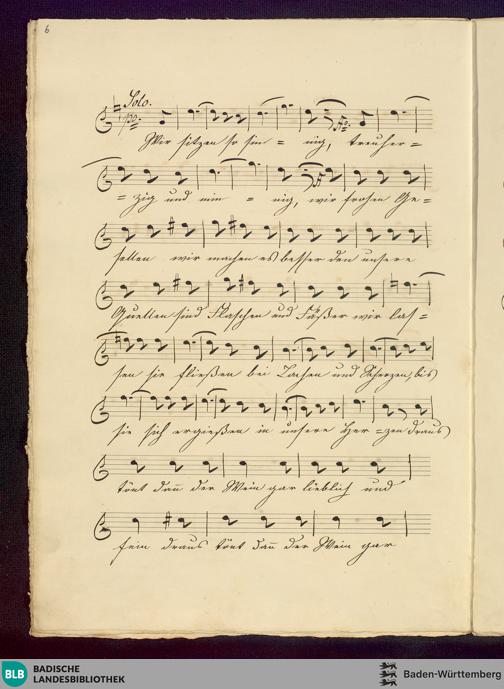 6
Solo.
Wir sitzen so sin = nig, treuher =
= zig und min = nig, wir frohen Ge =
sellen wir machen es besser den unsere
Quellen sind Flaschen und Fäßer wir las =
sen sie fließen bei Lachen und Scherzen, bis
sie sich ergießen in unsere Her = zen draus
tönt dañ der Wein gar lieblich und
fein draus tönt dañ der Wein gar
BLB
BADISCHE
LANDESBIBLIOTHEK
Baden-Württemberg